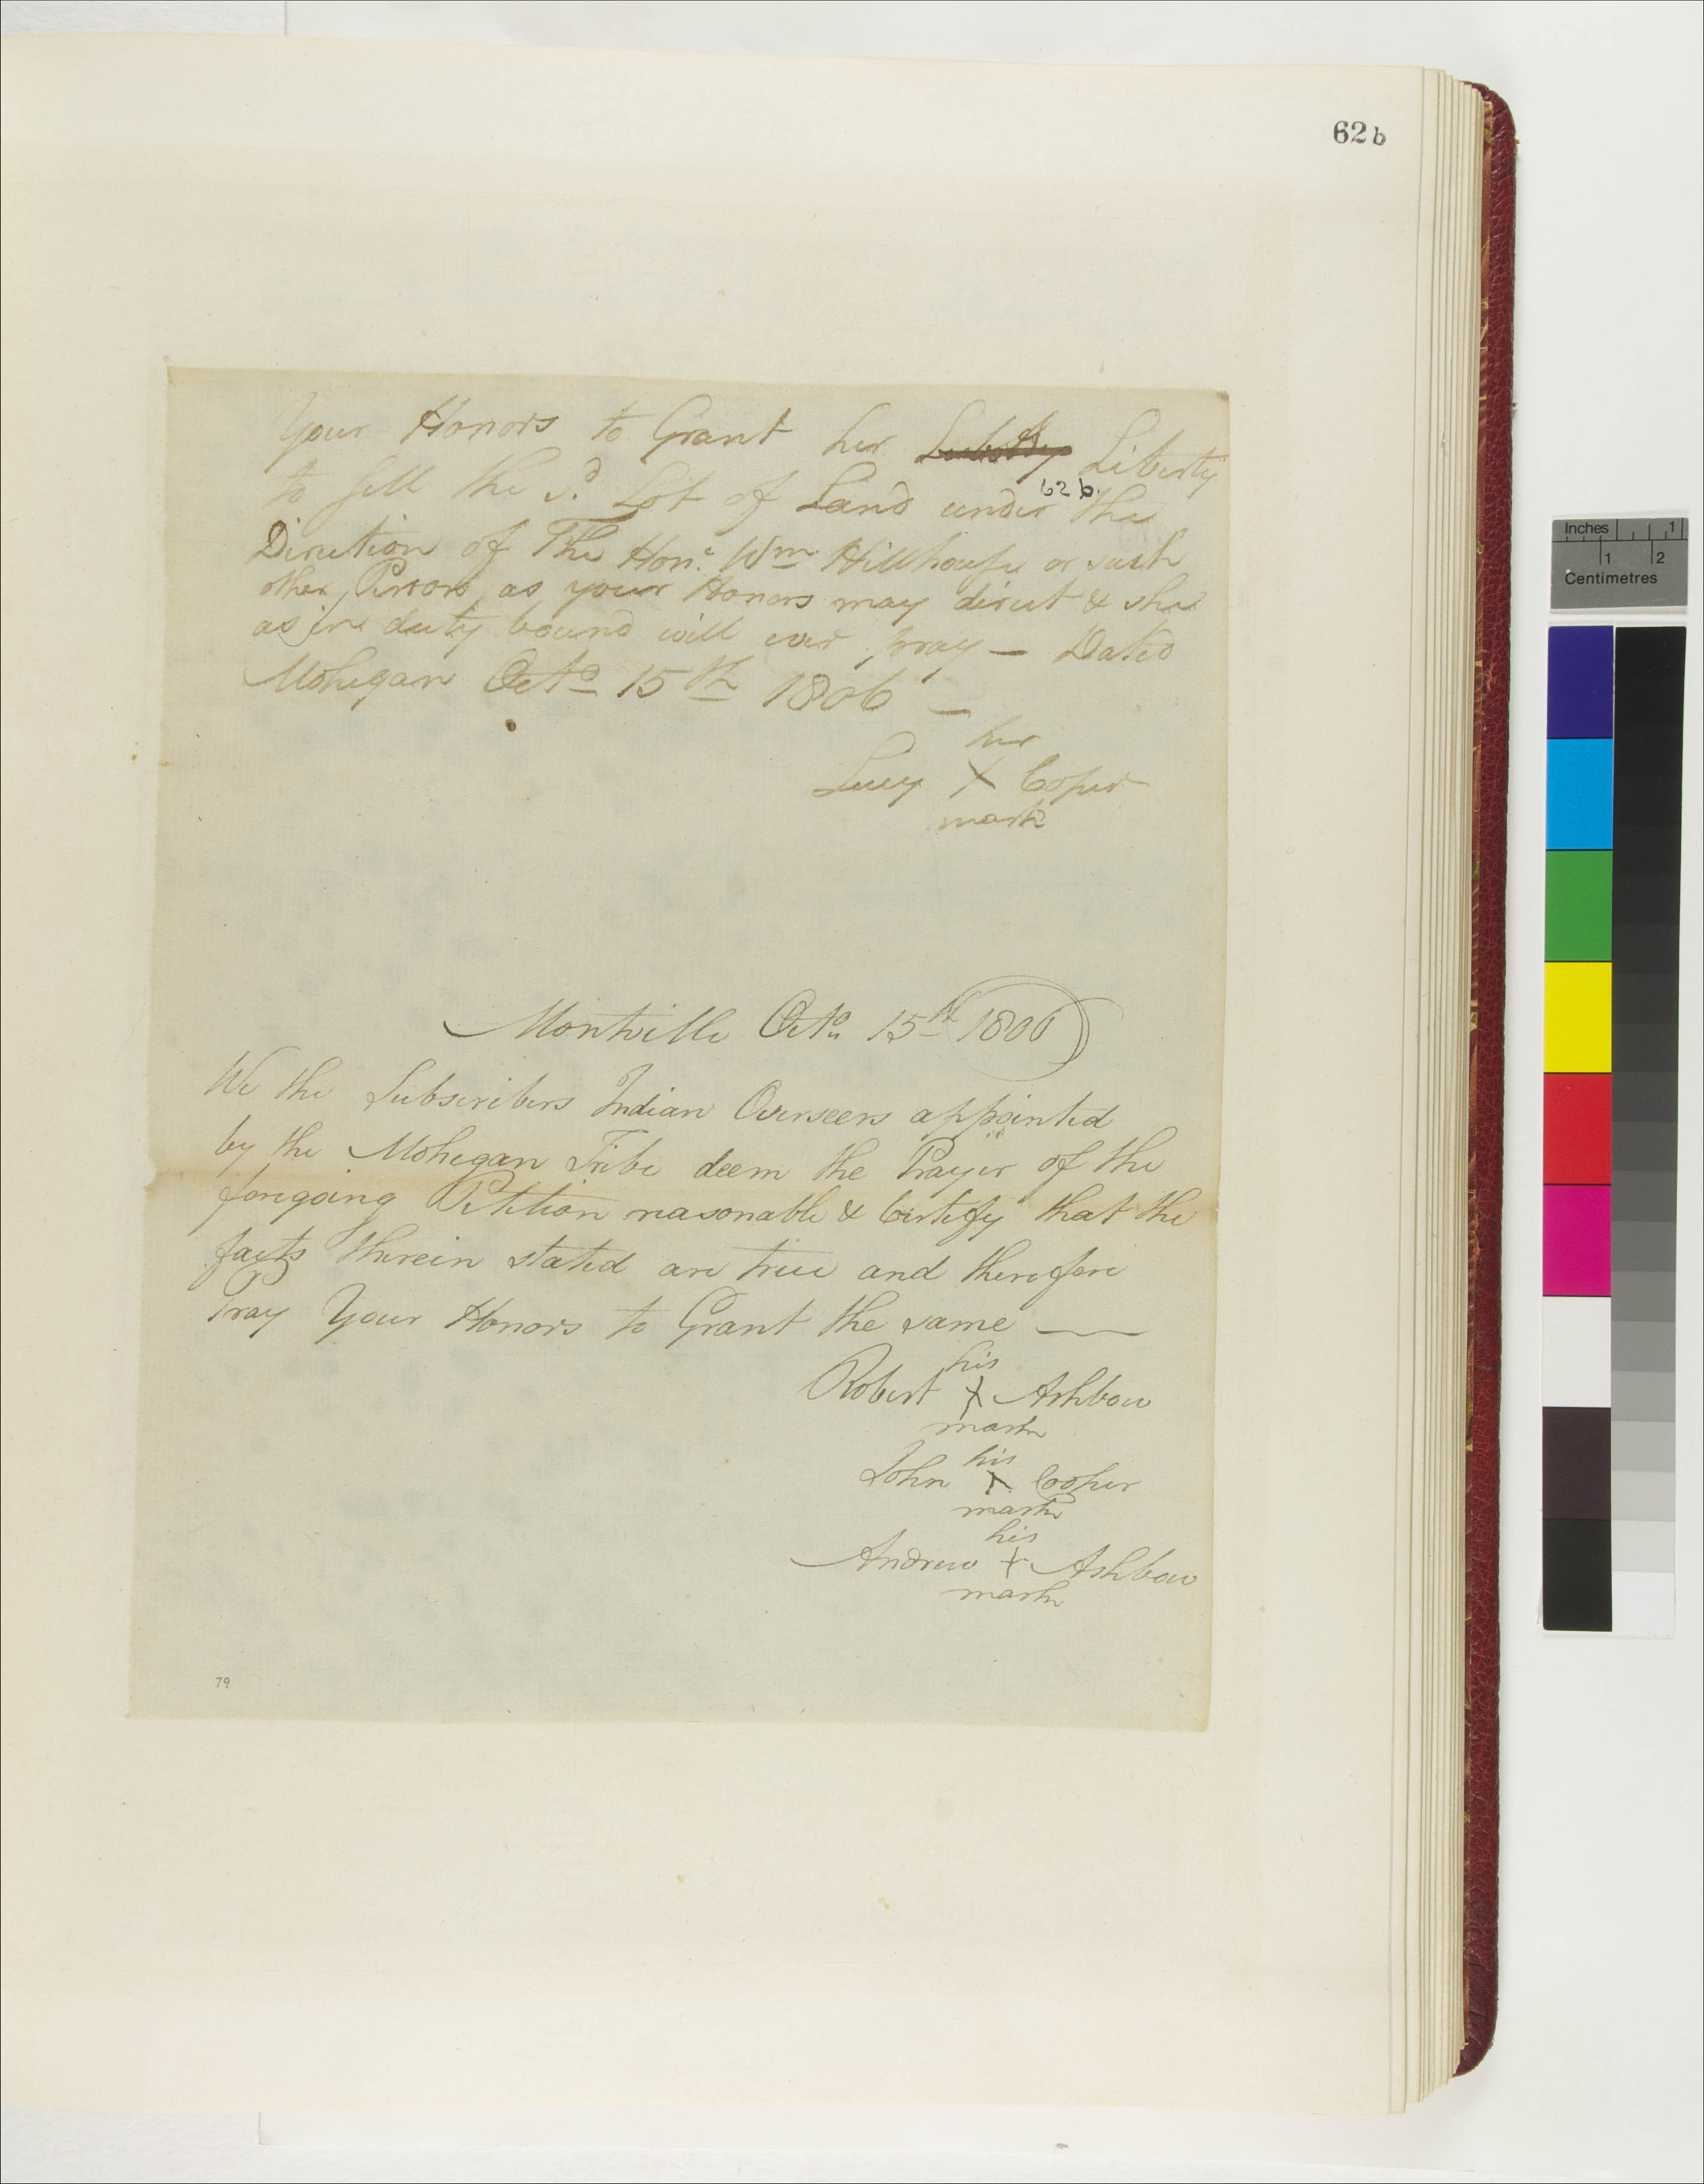 62b
Your Honors to Grant her Liberty
to sell the s.d Lot of Land under the
62b.
Direction of The Hon.e Wm Hillhouse or such
other Person as your Honors may direct & she
as in duty bound will ever pray — Dated
Mohegan Oct.o 15th 1806 —
her
Lucy X Coper
mark
Montville Oct.o 15th 1806
We the Subscribers Indian Overseers appointed
by the Mohegan Tribe deem the Prayer of the
foregoing Petition reasonable & Certify that the
facts therein stated are true and therefore
Pray Your Honors to Grant the same —
his
Robert X Ashbow
mark
his
John X Cooper
mark
his
Andrew + Ashbow
mark
79
Inches 1
1 2
Centimetres